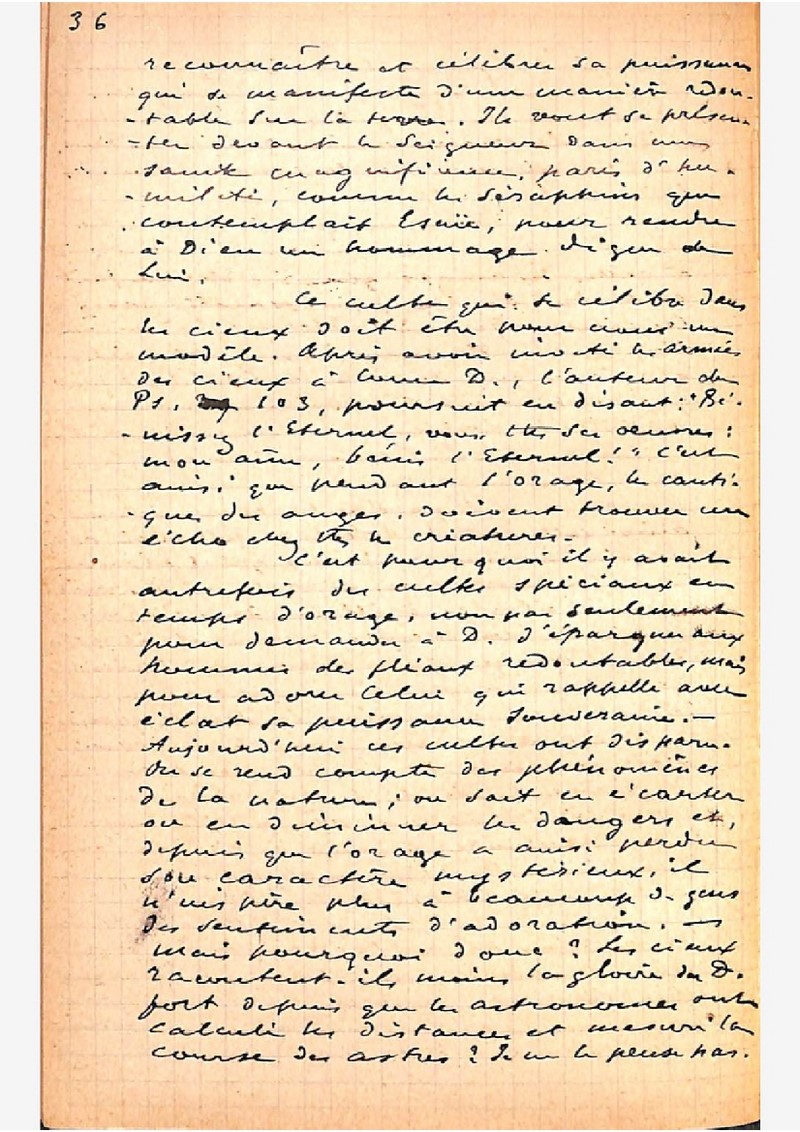 36
reconnaître et célébrer sa puissance
qui se manifeste d'une manière redou-
-table sur la terre. Ils vont se présen-
-ter devant le Seigneur dans une
sainte magnificence, parés d'hu-
-milité, comme les séraphins que
contemplait Esaïe, pour rendre
à Dieu un hommage digne de
Lui.
Ce culte qui se célèbre dans
les cieux doit être pour nous un
modèle. Après avoir invité les armées
des cieux à louer D., l'auteur du
Ps. 103, poursuit en disant: "Bé-
-nissez l'Eternel, vous ttes ses oeuvres:
mon âme, bénis l'Eternel!" C'est
ainsi que pendant l'orage, les canti-
-ques des anges doivent trouver un
écho chez ttes les créatures.-
C'est pourquoi il y avait
autrefois des cultes spéciaux en
temps d'orage, non pas seulement
pour demander à D. d'épargner aux
hommes des fléaux redoutables, mais
pour adorer Celui qui rappelle avec
éclat sa puissance souveraine.-
Aujourd'hui ces cultes ont disparu.
On se rend compte des phénomènes
de la nature; on sait en écarter
ou en diminuer les dangers et,
depuis que l'orage a ainsi perdu
son caractère mystérieux, il
n'inspire plus à beaucoup de gens
des sentiments d'adoration. -
Mais pourquoi donc? Les cieux
racontent-ils moins la gloire du D.
fort depuis que les astronomes ont
calculé les distances et mesuré la
course des astres? Je ne le pense pas.